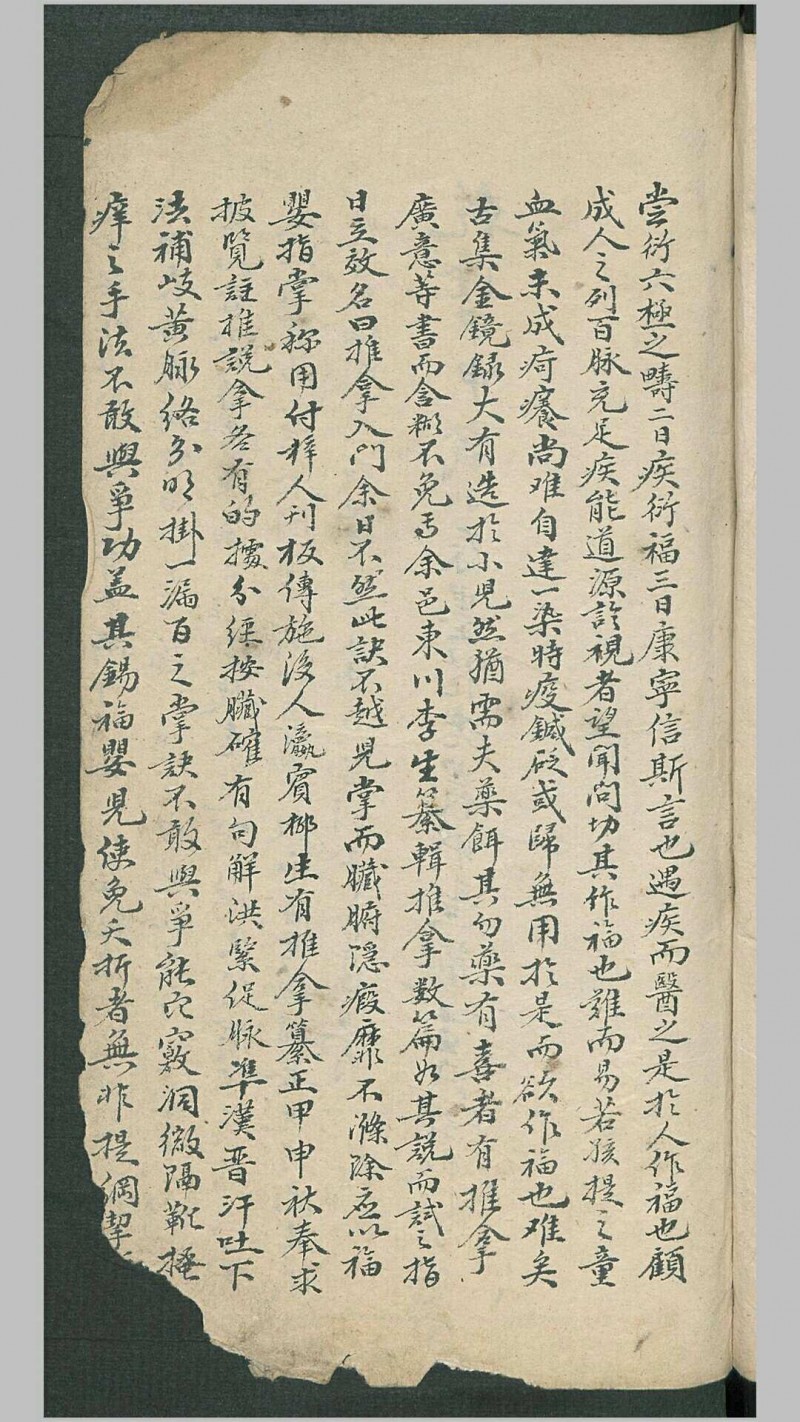 尝衍六極之疇二曰疾衍福三曰康寧信斯言也遇疾而醫之是於人作福也顧
成人之列百脉充足疾能道源診視者望聞問切其作福也難而易若孩提之童
血氣未成疴癢尚难自達一染時疫鍼砭或歸無用於是而欲作福也难矣
古集金鏡錄大有造於小児然猶需夫藥餌其勿藥有喜者有推拿
廣意等書而含糊不免焉余邑東川李生纂輯推拿数篇如其説而試之指
日立效名曰推拿入門余曰不然此訣不越児掌而臟腑隱瘕靡不滌除應以福
嬰指掌称用付梓人刊板傳施後人瀛賓柳生有推拿纂正甲申秋奉求
披覽註推説拿各有的據分經按臟確有句解洪緊促脉準漢晋汗吐下
法補岐黄脉絡分明掛一漏百之掌訣不敢與爭能穴竅洞徹隔靴搔
癢之手法不敢與爭功盖其錫福嬰児使免夭折者無非提綱挈